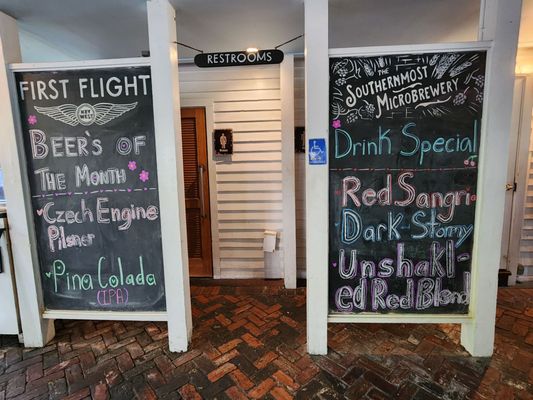 RESTROOMS
FIRST FLIGHT
KEY WEST
BEER'S OF
THE MONTH
Czech Engine
Pilsner
Pina Colada
(IPA)
THE
SOUTHERNMOST
MICROBREWERY
Drink Special
Red Sangri
Dark-Stormy
Unshakl-
ed Red Blend